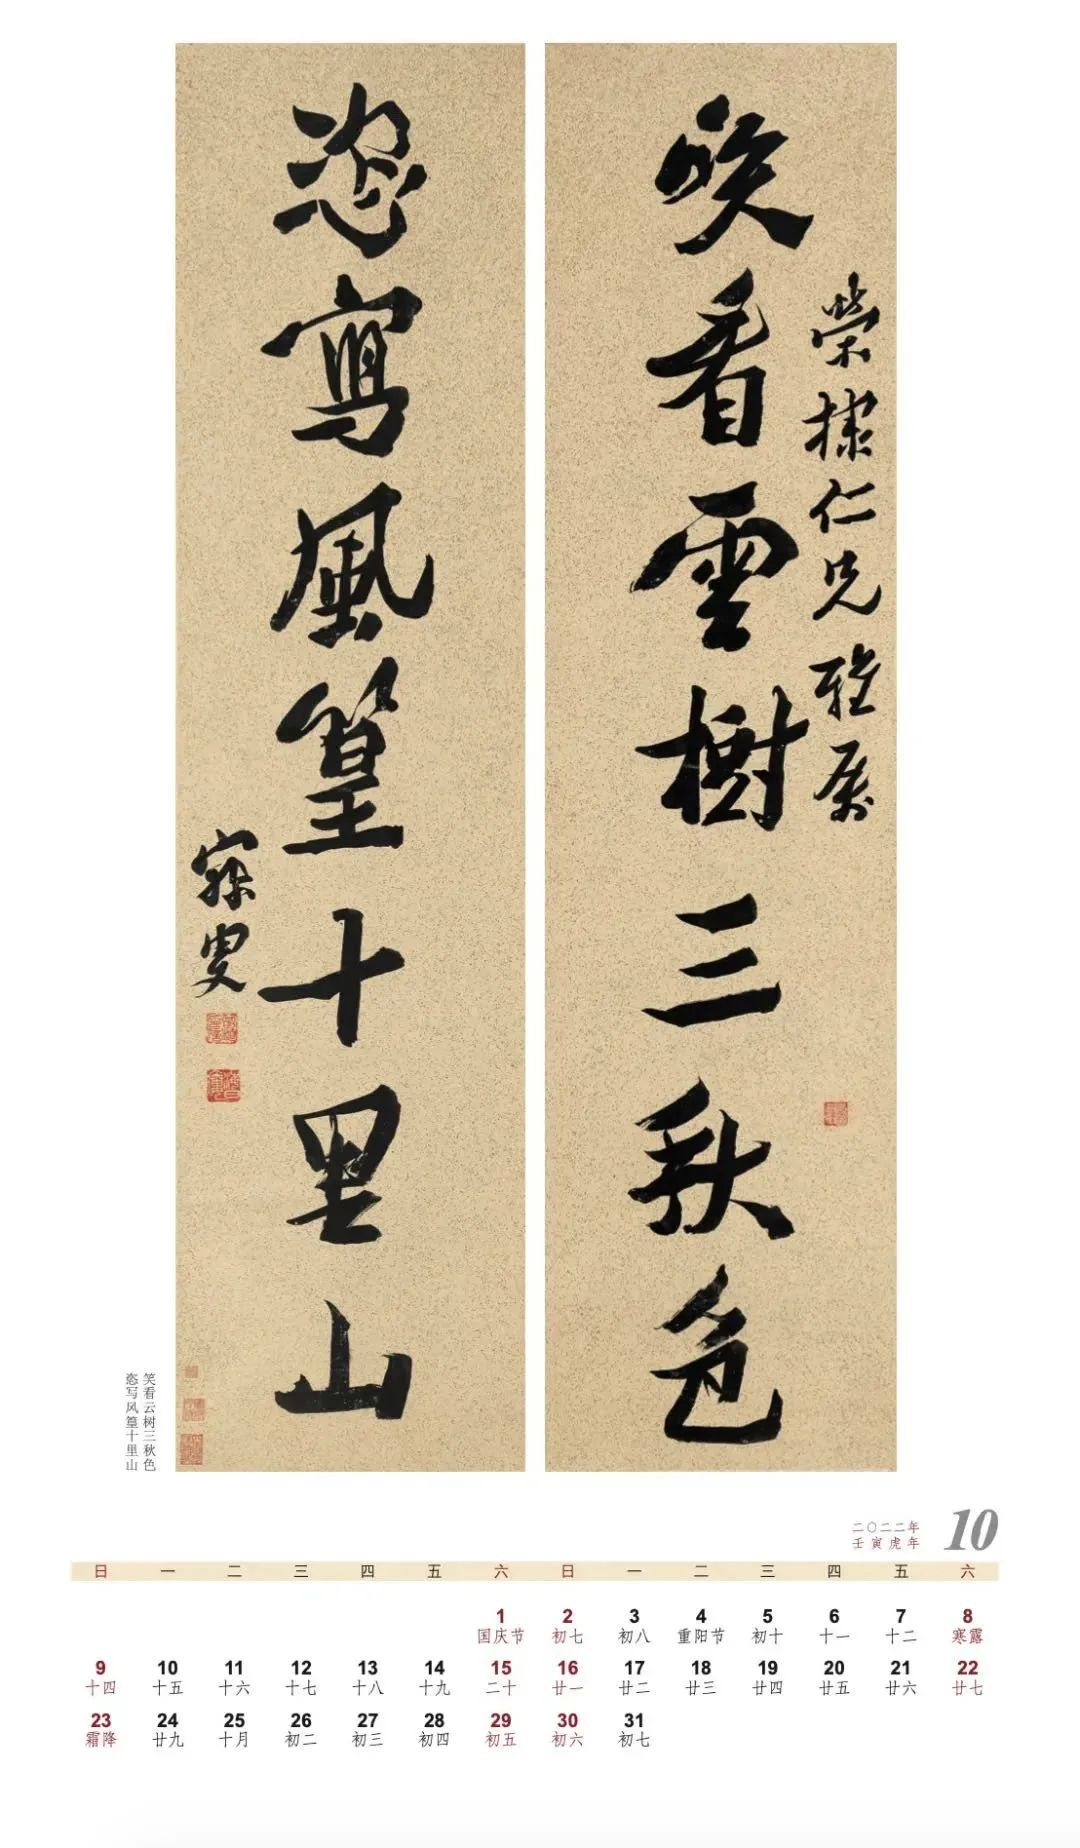 榮棣仁兄雅屬
咲看雲樹三秋色
恣寫風篁十里山
寐叟
笑看云树三秋色
恣写风篁十里山
二〇二二年
壬寅虎年
10
日 一 二 三 四 五 六 日 一 二 三 四 五 六
1 2 3 4 5 6 7 8
国庆节 初七 初八 重阳节 初十 十一 十二 寒露
9 10 11 12 13 14 15 16 17 18 19 20 21 22
十四 十五 十六 十七 十八 十九 二十 廿一 廿二 廿三 廿四 廿五 廿六 廿七
23 24 25 26 27 28 29 30 31
霜降 廿九 十月 初二 初三 初四 初五 初六 初七